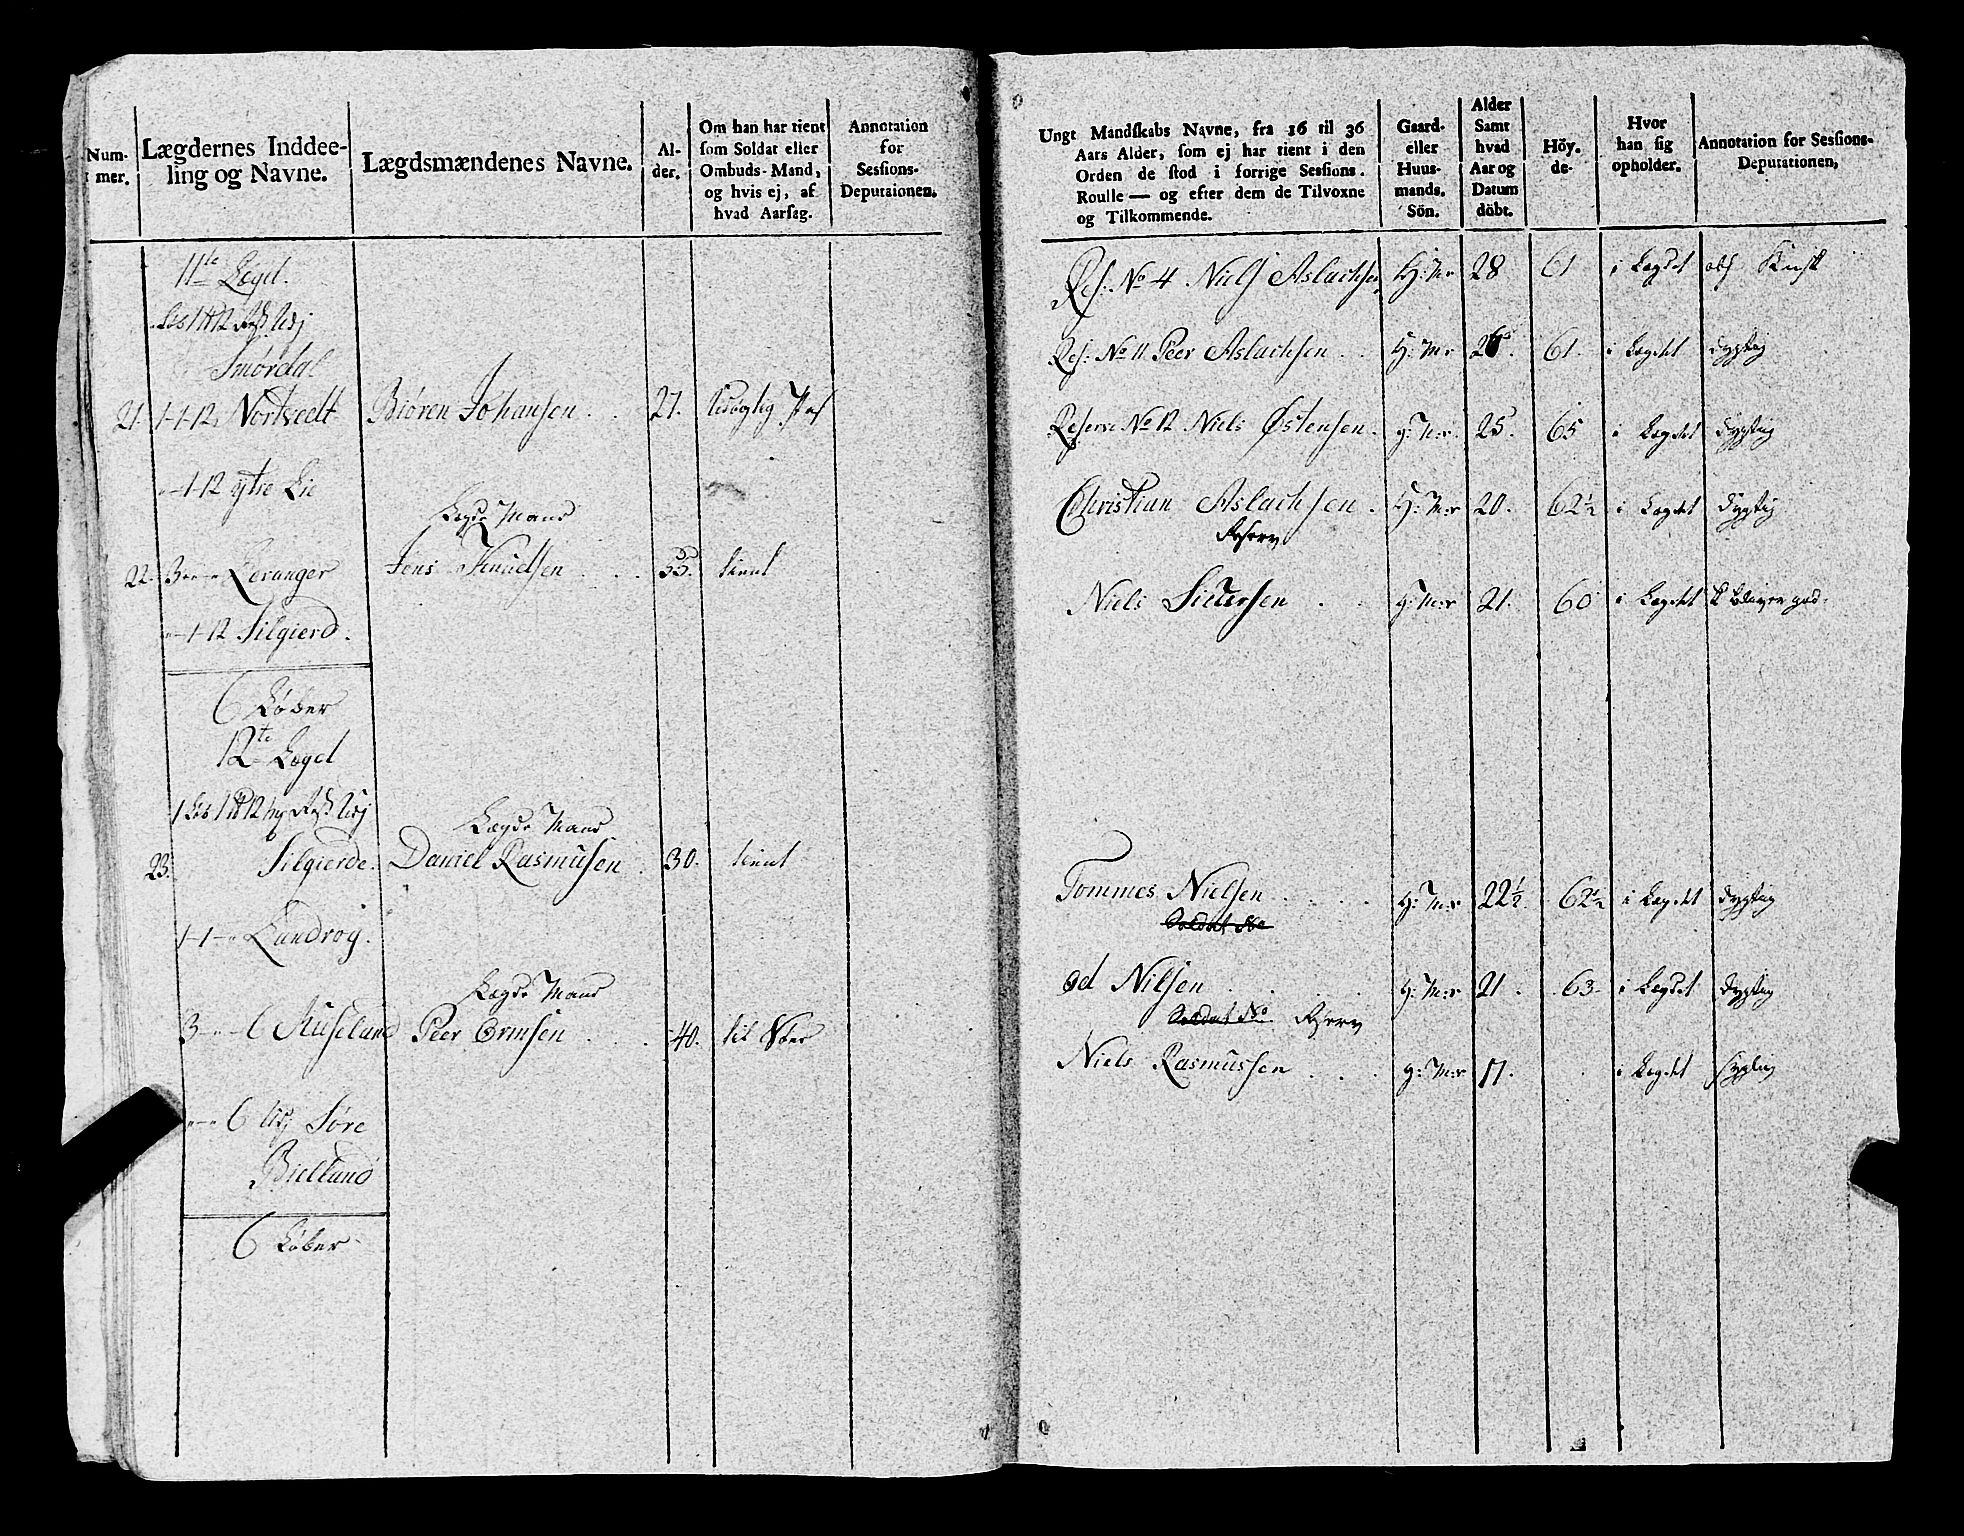 Num-
mer.
Lægdernes Inddee-
ling og Navne.
Lægdsmændenes Navne.
Al-
der.
Om han har tient
som Soldat eller
Ombuds-Mand,
og hvis ej, af
hvad Aarsag.
Annotation
for
Sessions-
Deputaionen.
11te Lægd.
Smørdal
21. 1-1-12 Nortvedt Biören Johansen . . 27.
1-12 ytre Lie
Lægds Mand
22. 3 Leranger Jens Knudsen . . . 55. tient
1-12 Silgierd.
6 Løber
12te Lægd
Lægds Mand
23. Silgierde. Daniel Rasmusen . 30. tient
1-1 Lundrøg.
Lægds Mand
3 6 Auseland Peer Ormsen . . . 40.
6 Søre
Bielland
6 Løber
Ungt Mandskabs Navne, fra 16 til 36
Aars Alder, som ej har tient i den
Orden de stod i forrige Sessions-
Roulle — og efter dem de Tilvoxne
og Tilkommende.
Gaard-
eller
Huus-
mands.
Sön.
Alder
Samt
hvad
Aar og
Datum
döbt.
Höy-
de-
Hvor
han sig
opholder.
Annotation for Sessions-
Deputationen,
Res: No 4 Niels Aslachsen H: M:r 28 61 i Lægdet
Res: No 11 Peer Aslachsen . . H: M:r 26. 61. i Lægdet dygtig
Reserve No 12 Niels Østensen . g: M:r. 25. 65 i Lægdet dygtig
Christian Aslachsen . H: M:r 20. 62½ i Lægdet dygtig
Reserv
Niels Siversen . . g: M:r 21. 60 i Lægdet
Tommes Nielsen . . . . H: M:r 22½. 62½ i Lægdet dygtig
Soldat No
od Nilsen . . . . H: M:r 21. 63. i Lægdet dygtig
Soldat No Reserv
Niels Rasmussen . . . g: M:r 17. i Lægdet